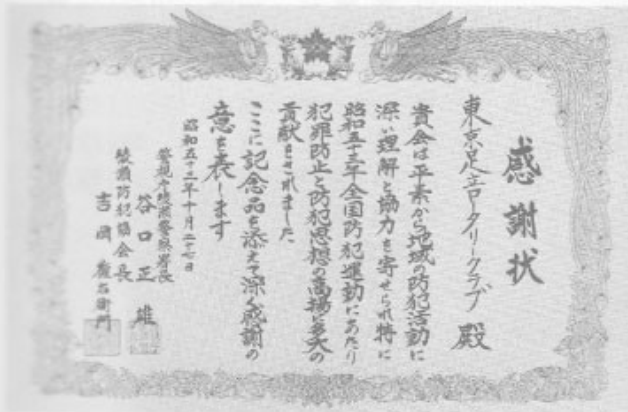 感謝状
東京足立ロータリークラブ 殿
貴会は平素から地域の防犯活動に
深い理解と協力を寄せられ特に
昭和五十三年全国防犯運動にあたり
犯罪防止と防犯思想の高揚に多大の
貢献をされました
ここに記念品を添えて深く感謝の
意を表します
昭和五十三年十月二十七日
警視庁綾瀬警察署長
谷口正雄
綾瀬防犯協会長
吉田
右衛門